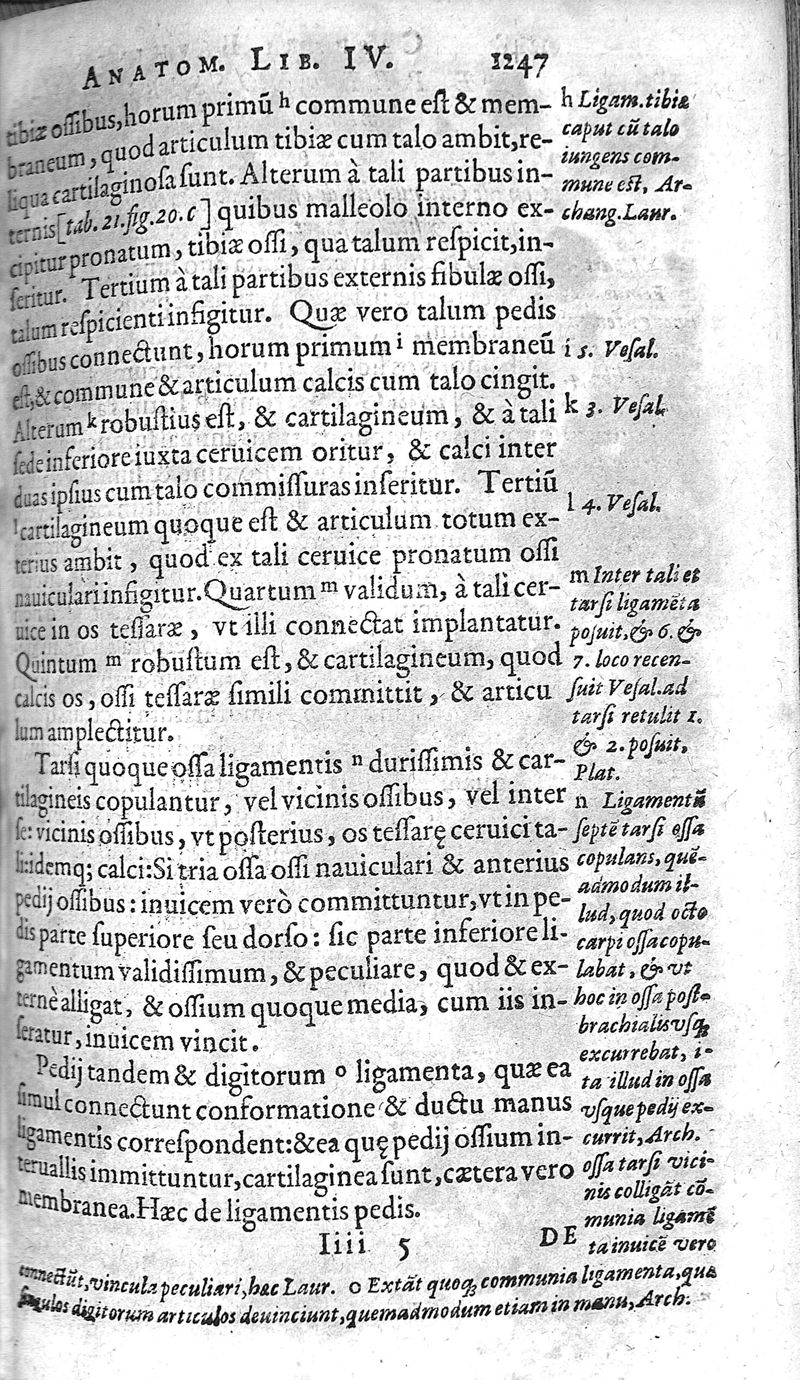 ANATOM. LIB. IV. 1247
tibiæ oſſibus, horum primũ h commune eſt & mem-
braneum, quod articulum tibiæ cum talo ambit, re-
liqua cartilaginoſa ſunt. Alterum à tali partibus in-
ternis [tab. 21. fig. 20. c] quibus malleolo interno ex-
cipitur pronatum, tibiæ oſſi, qua talum reſpicit, in-
ſeritur. Tertium à tali partibus externis fibulæ oſſi,
talum reſpicienti infigitur. Quæ vero talum pedis
oſſibus connectunt, horum primum i membraneũ
eſt, & commune & articulum calcis cum talo cingit.
Alterum k robuſtius eſt, & cartilagineum, & à tali
ſede inferiore iuxta ceruicem oritur, & calci inter
duas ipſius cum talo commiſſuras inſeritur. Tertiũ
l cartilagineum quoque eſt & articulum totum ex-
terius ambit, quod ex tali ceruice pronatum oſſi
nauiculari infigitur. Quartum m validum, à tali cer-
uice in os teſſaræ, vt illi connectat implantatur.
Quintum m robuſtum eſt, & cartilagineum, quod
calcis os, oſſi teſſaræ ſimili committit, & articu
lum amplectitur.
Tarſi quoque oſſa ligamentis n duriſſimis & car-
tilagineis copulantur, vel vicinis oſſibus, vel inter
ſe: vicinis oſſibus, vt poſterius, os teſſarę ceruici ta-
li: idemq; calci: Si tria oſſa oſſi nauiculari & anterius
pedij oſſibus: inuicem verò committuntur, vt in pe-
dis parte ſuperiore ſeu dorſo: ſic parte inferiore li-
gamentum validiſſimum, & peculiare, quod & ex-
ternè alligat, & oſſium quoque media, cum iis in-
ſeratur, inuicem vincit.
Pedij tandem & digitorum o ligamenta, quæ ea
ſimul connectunt conformatione & ductu manus
ligamentis correſpondent: & ea quę pedij oſſium in-
teruallis immittuntur, cartilaginea ſunt, cætera vero
membranea. Hæc de ligamentis pedis.
Iiii 5 DE
h Ligam. tibiæ
caput cũ talo
iungens com-
mune eſt, Ar-
chang. Laur.
i 5. Veſal.
k 3. Veſal.
l 4. Veſal.
m Inter tali et
tarſi ligamẽta
poſuit, & 6. &
7. loco recen-
ſuit Veſal. ad
tarſi retulit 1.
& 2. poſuit,
Plat.
n Ligamentũ
ſeptẽ tarſi oſſa
copulans, quẽ-
admodum il-
lud, quod octo
carpi oſſa copu-
labat, & vt
hoc in oſſa poſt-
brachialis vſq;
excurrebat, i-
ta illud in oſſa
vſque pedij ex-
currit, Arch.
oſſa tarſi vici-
nis colligãt cõ-
munia ligamẽ
ta inuicẽ vero
connectũt, vincula peculiari, hæc Laur. o Extãt quoq; communia ligamenta, quæ
ſingulos digitorum articulos deuinciunt, quemadmodum etiam in manu, Arch.